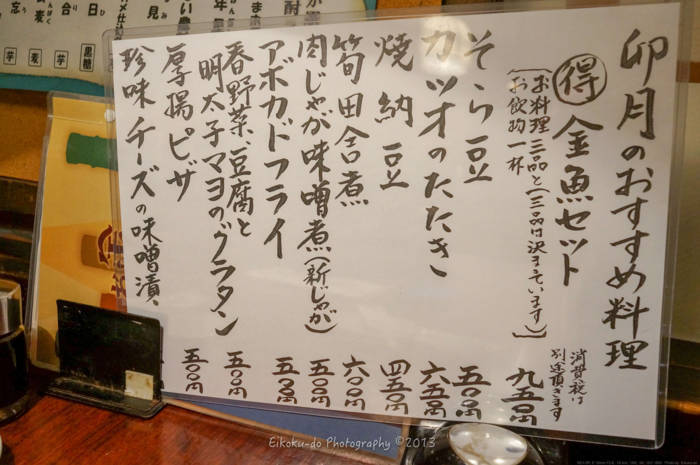 卯月のおすすめ料理
消費税は
別途頂きます
得 金魚セット 九五〇円
(お料理三品と(三品は決まています)
お飲物一杯)
そら豆 五〇〇円
カツオのたたき 六五〇円
焼納豆 四五〇円
筍田舎煮 六〇〇円
肉じゃが味噌煮(新じゃが) 五〇〇円
アボカドフライ 五〇〇円
春野菜、豆腐と
明太子マヨのグラタン 五〇〇円
厚揚ピザ 五〇〇円
珍味 チーズの味噌漬、
Eikoku-do Photography ©2013